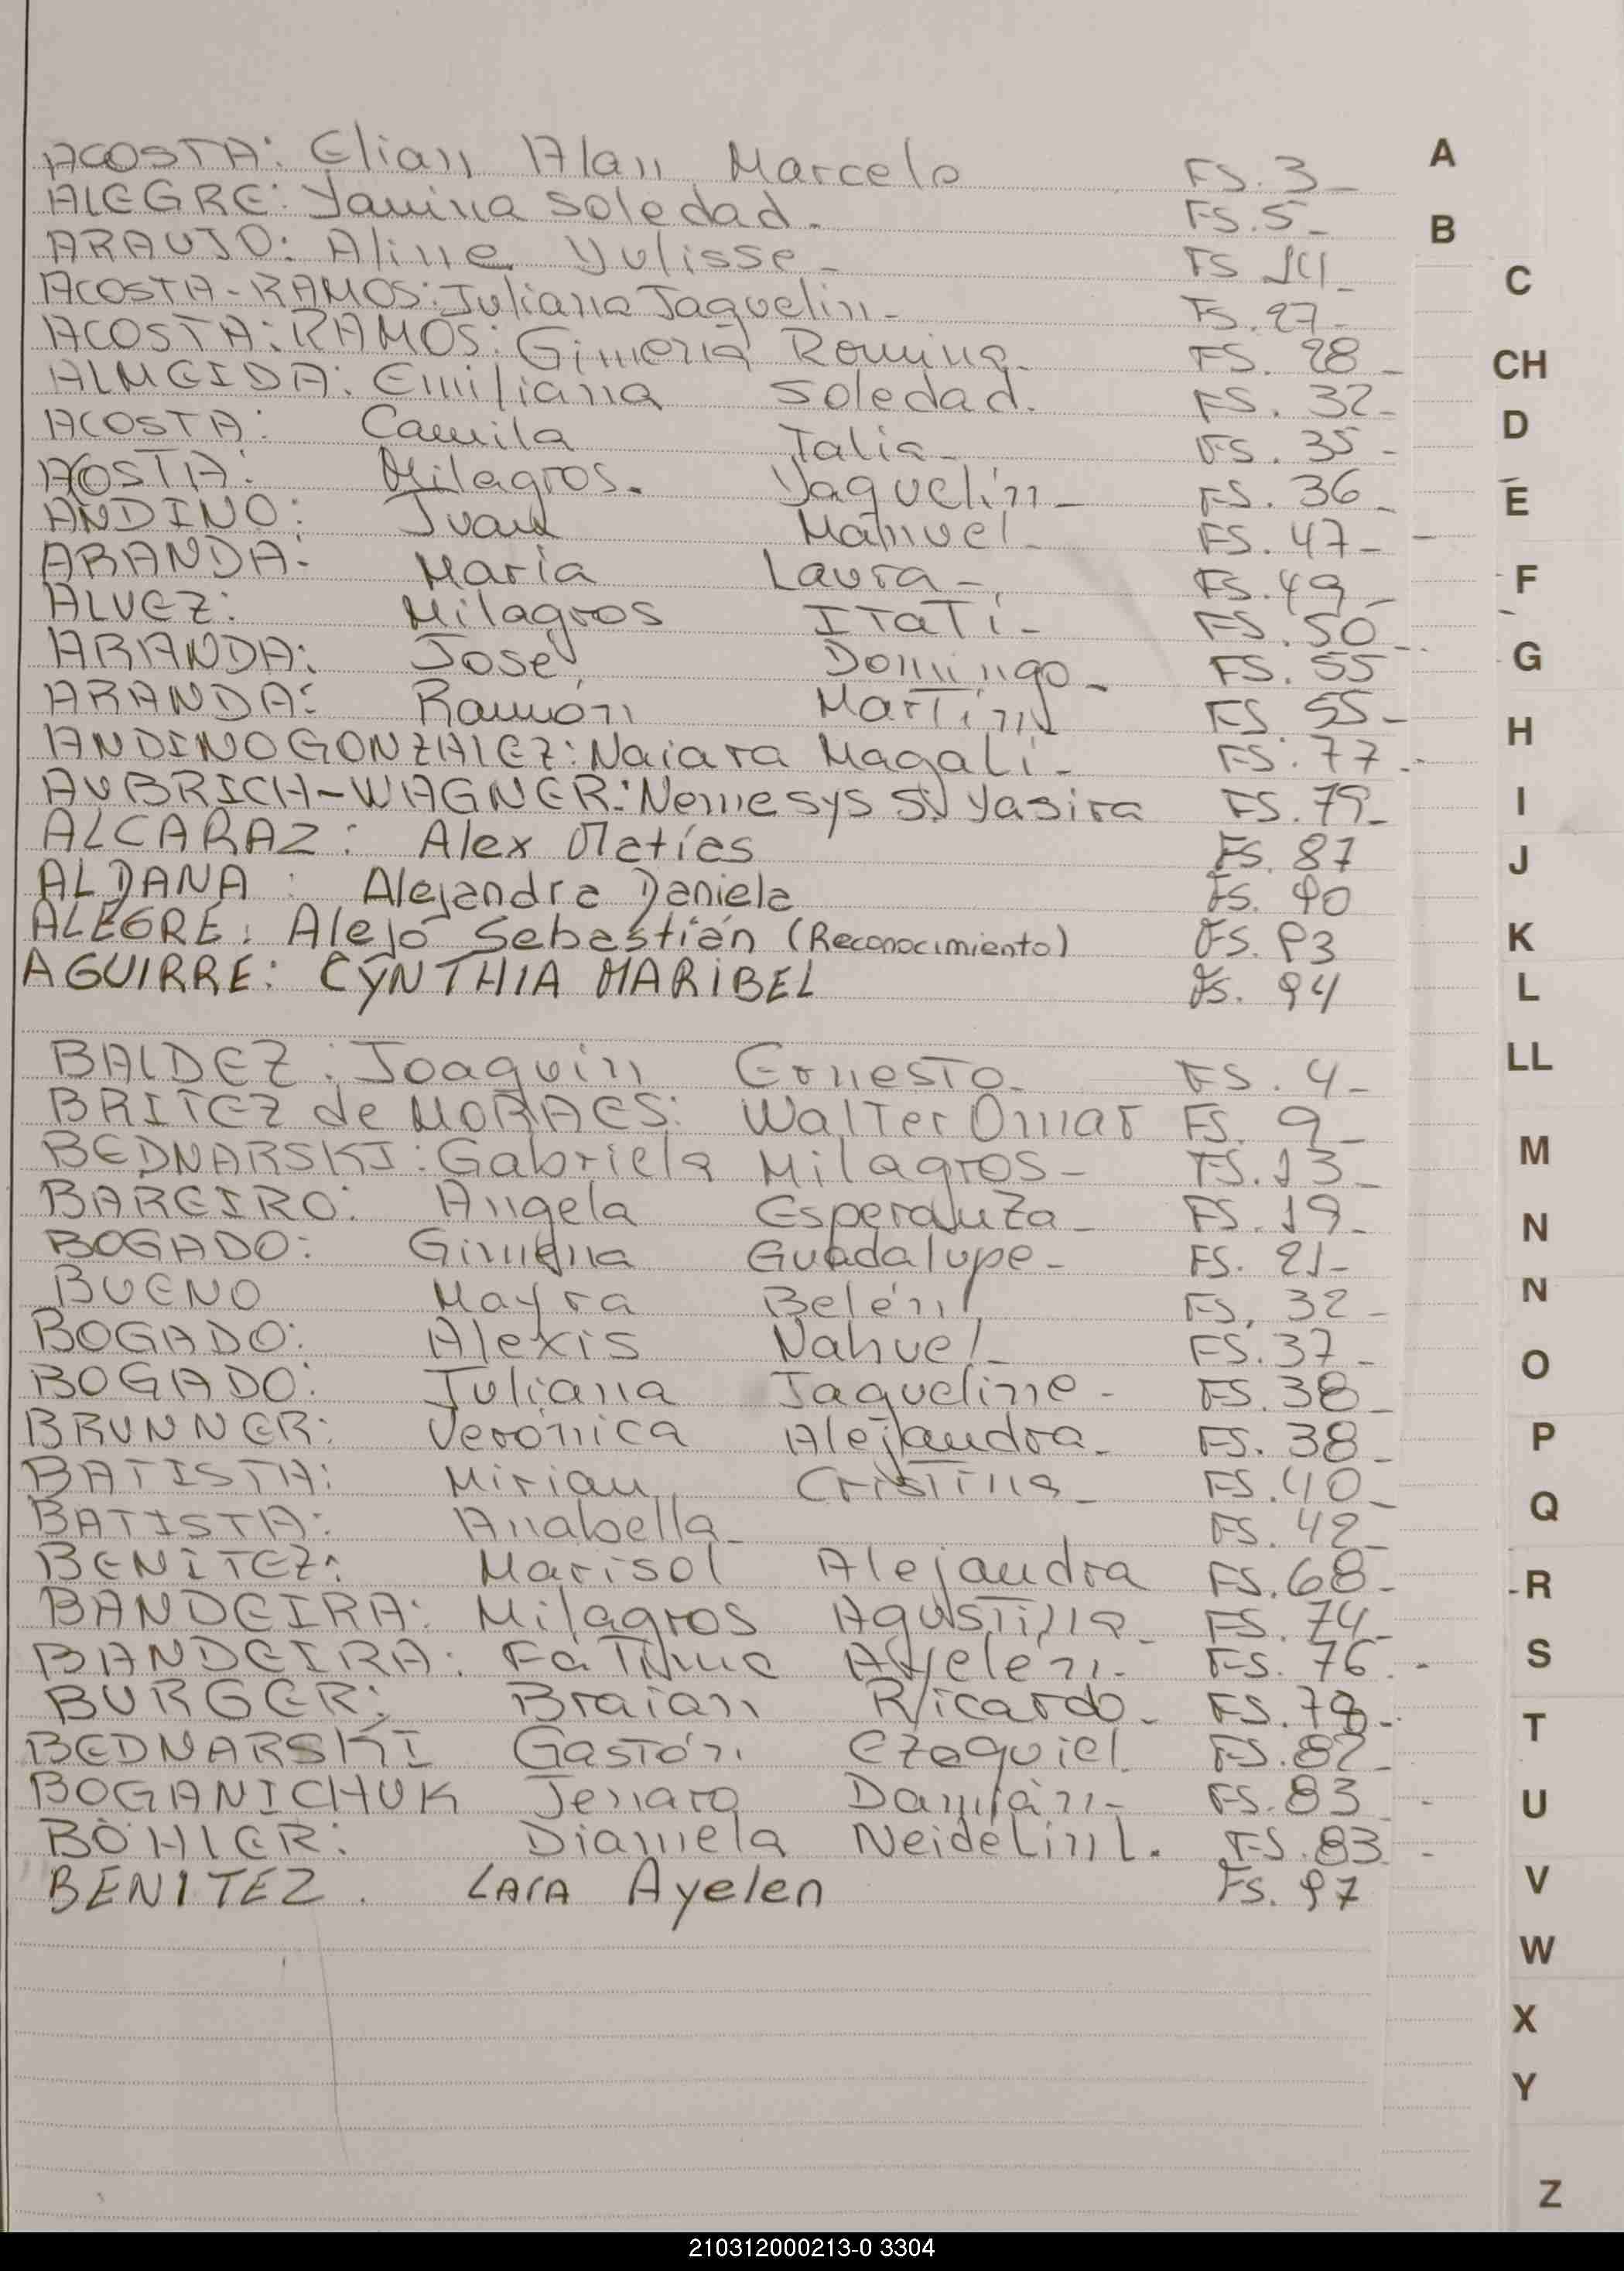 ACOSTA: Elian Alan Marcelo FS. 3_
ALEGRE: Yanina Soledad. FS. 5_
ARAUJO: Aline Yulisse_ FS 14_
ACOSTA-RAMOS: Juliana Jaquelin_ FS. 27_
ACOSTA: RAMOS: Gimena Romina. FS. 28_
ALMEIDA: Emiliana Soledad. FS. 32_
ACOSTA: Camila Talia_ FS. 35_
AOSTA: Milagros. Yaquelín_ FS. 36_
ANDINO: Juan Manuel_ FS. 47_
ARANDA: María Laura_ FS. 49_
ALVEZ: Milagros ITaTí_ FS. 50_
ARANDA: José Domingo_ FS. 55
ARANDA: Ramón Martín FS 55_
ANDINO GONZALEZ: Naiara Magalí_ FS. 77_
AUBRICH-WAGNER: Nemesys S. Yasira FS. 79_
ALCARAZ: Alex Matías FS. 87
ALDANA: Alejandra Daniela FS. 90
ALEGRE: Alejo Sebastián (Reconocimiento) FS. 93
AGUIRRE: CYNTHIA MARIBEL FS. 94
BALDEZ: Joaquin Ernesto_ FS. 4_
BRITEZ de MORAES: Walter Omar FS. 9_
BEDNARSKI: Gabriela Milagros_ FS. 13_
BAREIRO: Angela Esperanza_ FS. 19_
BOGADO: Gimena Guadalupe_ FS. 21_
BUENO Mayra Belén FS. 32_
BOGADO: Alexis Nahuel_ FS. 37_
BOGADO: Juliana Jaqueline_ FS. 38_
BRUNNER: Verónica Alejandra_ FS. 38_
BATISTA: Mirian Cristina_ FS. 40_
BATISTA: Anabella_ FS. 42_
BENITEZ: Marisol Alejandra FS. 68_
BANDEIRA: Milagros Agustina_ FS. 74_
BANDEIRA: Fatima Ayelen_ FS. 76_
BURGER: Braian Ricardo_ FS. 78_
BEDNARSKI Gastón Ezequiel FS. 82_
BOGANICHUK Jenaro Damián_ FS. 83_
BÖHLER: Diamela Neidelin L. FS. 83_
BENITEZ. Lara Ayelen FS. 97
A
B
C
CH
D
E
F
G
H
I
J
K
L
LL
M
N
N
O
P
Q
R
S
T
U
V
W
X
Y
Z
210312000213-0 3304